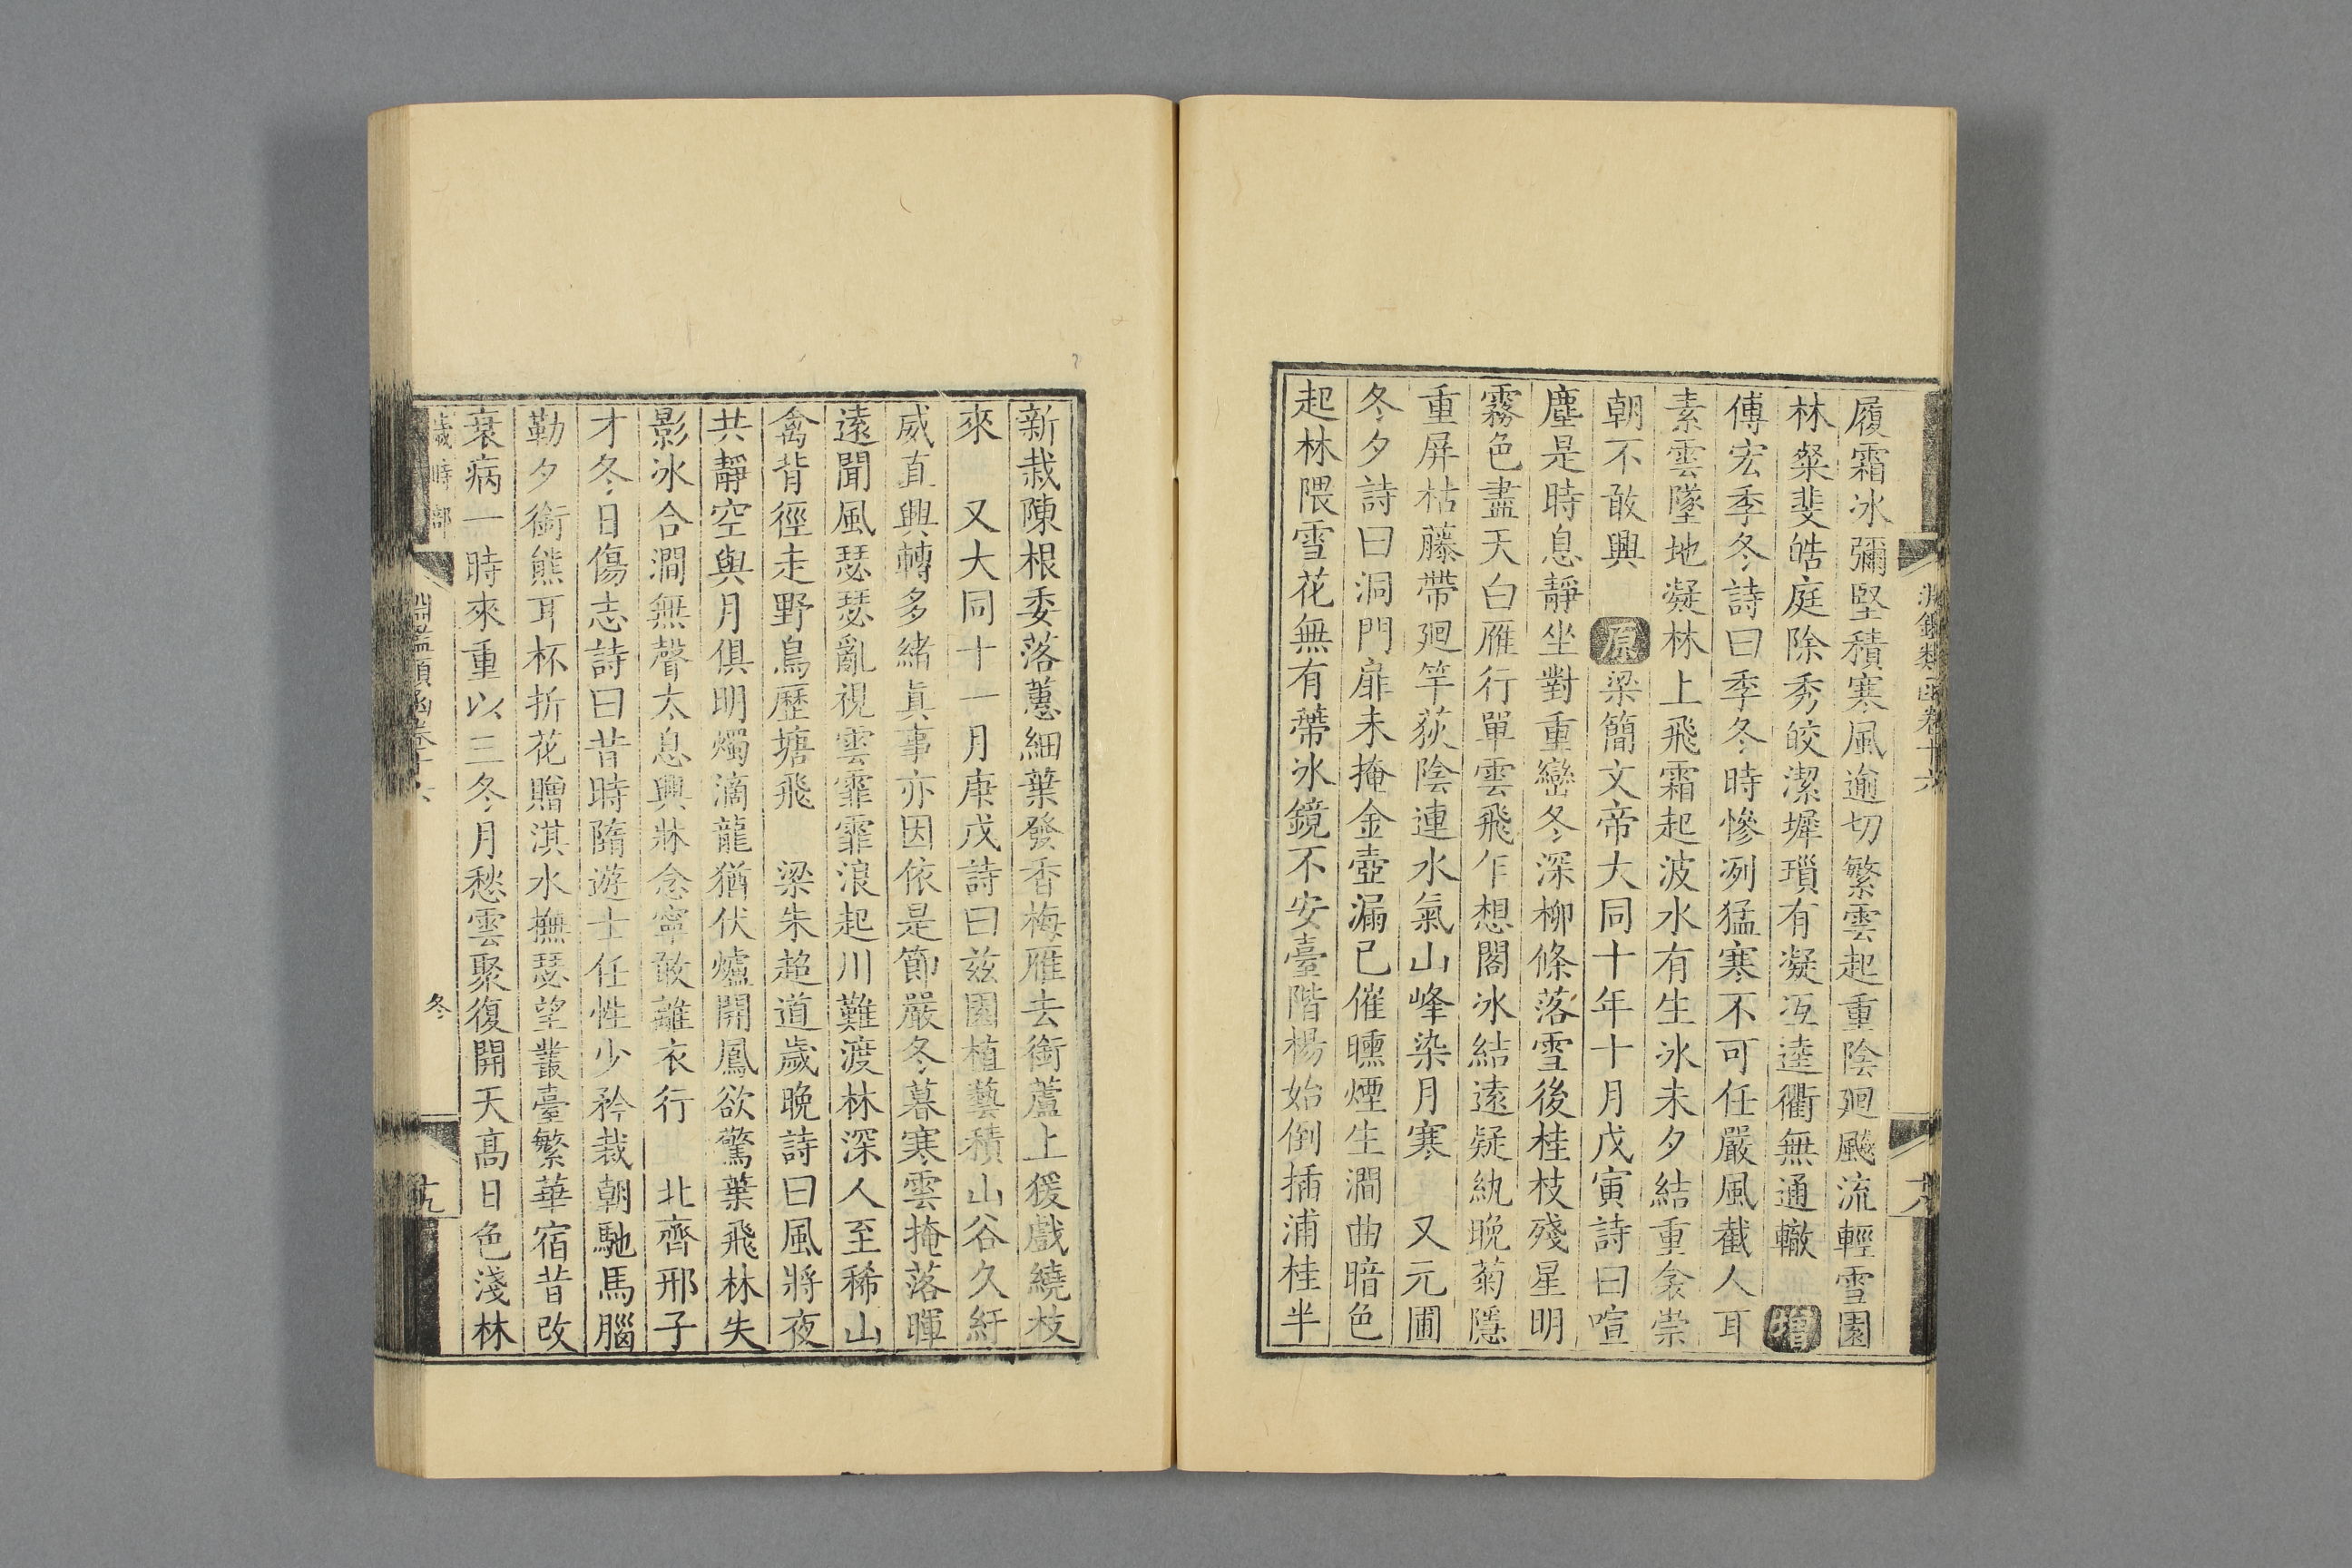 淵鑑類函卷十六
履霜冰彌堅積寒風逾切繁雲起重陰廻飈流輕雪園
林粲斐皓庭除秀皎潔墀瑣有凝冱逵衢無通轍 增
傅宏季冬詩曰季冬時慘冽猛寒不可任嚴風截人耳
素雲墜地凝林上飛霜起波水有生冰未夕結重衾崇
朝不敢興 原 梁簡文帝大同十年十月戊寅詩曰喧
塵是時息靜坐對重巒冬深柳條落雪後桂枝殘星明
霧色盡天白雁行單雲飛乍想閣冰結遠疑紈晚菊隱
重屏枯藤帶廻竿荻陰連水氣山峰染月寒 又元圃
冬夕詩曰洞門扉未掩金壺漏已催曛煙生澗曲暗色
起林隈雪花無有蔕冰鏡不安臺階楊始倒插浦桂半
新栽陳根委落蕙細葉發香梅雁去銜蘆上猨戲繞枝
來 又大同十一月庚戌詩曰兹園植藝積山谷久紆
威直興轉多緒眞事亦因依是節嚴冬暮寒雲掩落暉
遠聞風瑟瑟亂視雲霏霏浪起川難渡林深人至稀山
禽背徑走野鳥歷塘飛 梁朱超道歲晚詩曰風將夜
共靜空與月俱明燭滴龍猶伏爐開鳳欲驚葉飛林失
影冰合澗無聲太息興牀念寧敢離衣行 北齊邢子
才冬日傷志詩曰昔時隋遊士任性少矜裁朝馳馬腦
勒夕銜熊耳杯折花贈淇水撫瑟望叢臺繁華宿昔改
衰病一時來重以三冬月愁雲聚復開天高日色淺林
歲時部 淵鑑類函卷十六 冬 十九